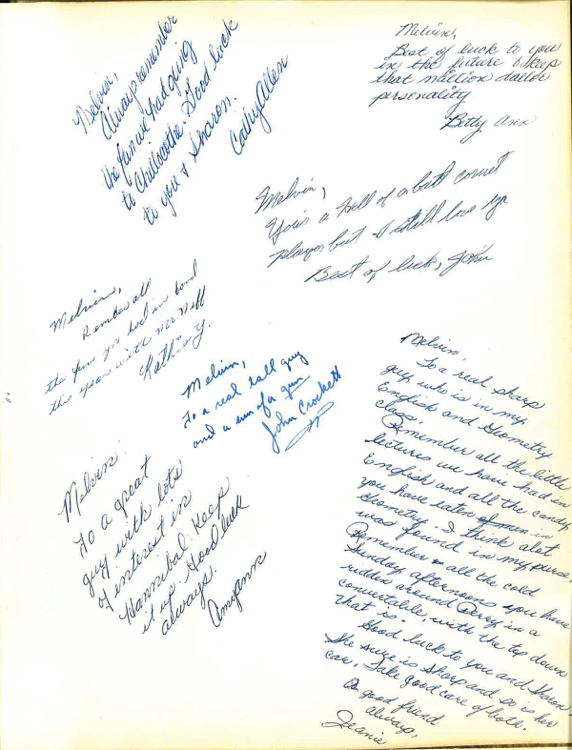 Melvin,
Always remember
the fun we had going
to Chillocothe. Good luck
to you & Sharon.
Cathy Allen
Melvin,
Best of luck to you
in the future & keep
that million dallor
personality
Betty Ann
Melvin,
You're a Hell of a bad cornet
player but I still love ya
Best of luck, John
Melvin,
Rember all
the fun you had in band
this year with Mr. Neff
Kathie Y.
Melvin,
To a real tall guy
and a son of a gun
John Crockett
Melvin
To a great
guy with lots
of interest in
Hannibal. Keep
it up. Good luck
always.
Amy Ann
Melvin,
To a real sharp
guy who is in my
English and Geometry
class.
Remember all the little
lectures we have had in
English and all the candy
you have eaten in
Geometry. I think alot
was found in my purse.
Remember all the cold
Sunday afternoons you have
ridden around Perry in a
convertable, with the top down
that is.
Good luck to you and Sharon.
She sure is sharp and so is her
car. Take good care of both.
A good friend
always,
Jeanie